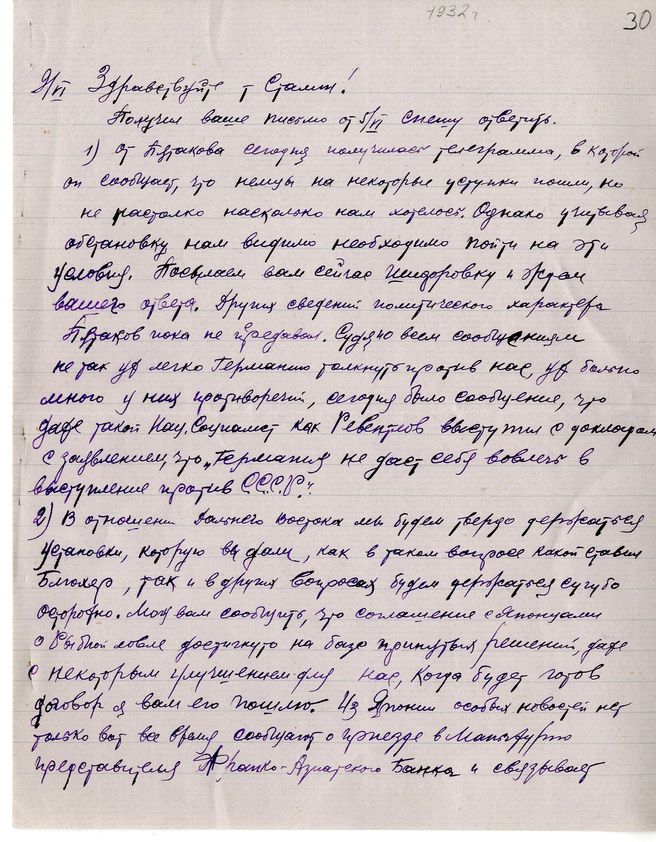 1932 г.
30
9/VI Здравствуйте т Сталин!
Получил ваше письмо от 5/VI спешу ответить.
1) от Пятакова сегодня получилась телеграмма, в которой
он сообщает, что немцы на некоторые уступки пошли, но
не растолко насколько нам хотелось. Однако учитывая
обстановку нам видимо необходимо пойти на эти
условия. Посылаем вам сейчас шифровку и ждем
вашего ответа. Других сведений политического характера
Пятаков пока не передавал. Судя по всем сообщениям
не так уж легко Германию толкнуть против нас, уж больно
много у них противоречий, сегодня было сообщение, что
даже такой Нац. Социалист как Ревентлов выступил с докладом
с заявлением, что „Германия не даст себя вовлечь в
выступление против С.С.С.Р."
2) В отношении Дальнего Востока мы будем твердо держаться
установки, которую вы дали, как в таком вопросе какой ставил
Блюхер, так и в других вопросах будем держаться сугубо
осторожно. Могу вам сообщить, что соглашение с Японцами
о Рыбной ловле достигнуто на базе принятых решений, даже
с некоторым улучшением для нас, когда будет готов
договор я вам его пошлю. Из Японии особых новостей нет
только вот все время сообщают о приезде в Манчжурию
представителя Франко-Азиатского Банка и связывает